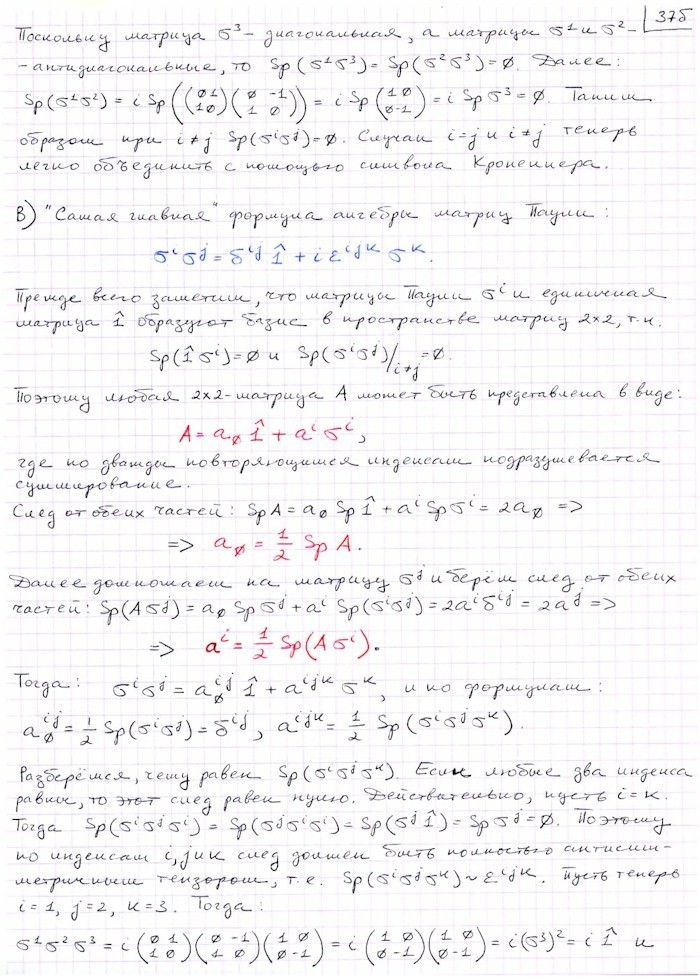 37б
Поскольку матрица σ³ - диагональная, а матрицы σ¹ и σ² -
- антидиагональные, то Sp(σ¹σ³) = Sp(σ²σ³) = 0. Далее:
Sp(σ¹σ²) = i Sp((0 1 / 1 0)(0 -1 / 1 0)) = i Sp(1 0 / 0 -1) = i Sp σ³ = 0. Таким
образом при i ≠ j Sp(σⁱσʲ) = 0. Случаи i = j и i ≠ j теперь
легко объединить с помощью символа Кронеккера.
В) "Самая главная" формула алгебры матриц Паули:
σⁱσʲ = δⁱʲ 1̂ + i εⁱʲᵏ σᵏ.
Прежде всего заметим, что матрицы Паули σⁱ и единичная
матрица 1̂ образуют базис в пространстве матриц 2×2, т.к.
Sp(1̂ σⁱ) = 0 и Sp(σⁱσʲ)/i≠j = 0.
Поэтому любая 2×2-матрица A может быть представлена в виде:
A = a₀ 1̂ + aⁱ σⁱ,
где по дважды повторяющимся индексам подразумевается
суммирование.
След от обеих частей: Sp A = a₀ Sp 1̂ + aⁱ Sp σⁱ = 2a₀ =>
=> a₀ = 1/2 Sp A.
Далее домножаем на матрицу σʲ и берём след от обеих
частей: Sp(A σʲ) = a₀ Sp σʲ + aⁱ Sp(σⁱσʲ) = 2aⁱ δⁱʲ = 2aʲ =>
=> aⁱ = 1/2 Sp(A σⁱ).
Тогда: σⁱσʲ = a₀ⁱʲ 1̂ + aⁱʲᵏ σᵏ, и по формулам:
a₀ⁱʲ = 1/2 Sp(σⁱσʲ) = δⁱʲ, aⁱʲᵏ = 1/2 Sp(σⁱσʲσᵏ).
Разберёмся, чему равен Sp(σⁱσʲσᵏ). Если любые два индекса
равны, то этот след равен нулю. Действительно, пусть i = k.
Тогда Sp(σⁱσʲσⁱ) = Sp(σʲσⁱσⁱ) = Sp(σʲ 1̂) = Sp σʲ = 0. Поэтому
по индексам i, j и k след должен быть полностью антисим-
метричным тензором, т.е. Sp(σⁱσʲσᵏ) ~ εⁱʲᵏ. Пусть теперь
i = 1, j = 2, k = 3. Тогда:
σ¹σ²σ³ = i (0 1 / 1 0)(0 -1 / 1 0)(1 0 / 0 -1) = i (1 0 / 0 -1)(1 0 / 0 -1) = i(σ³)² = i 1̂ и